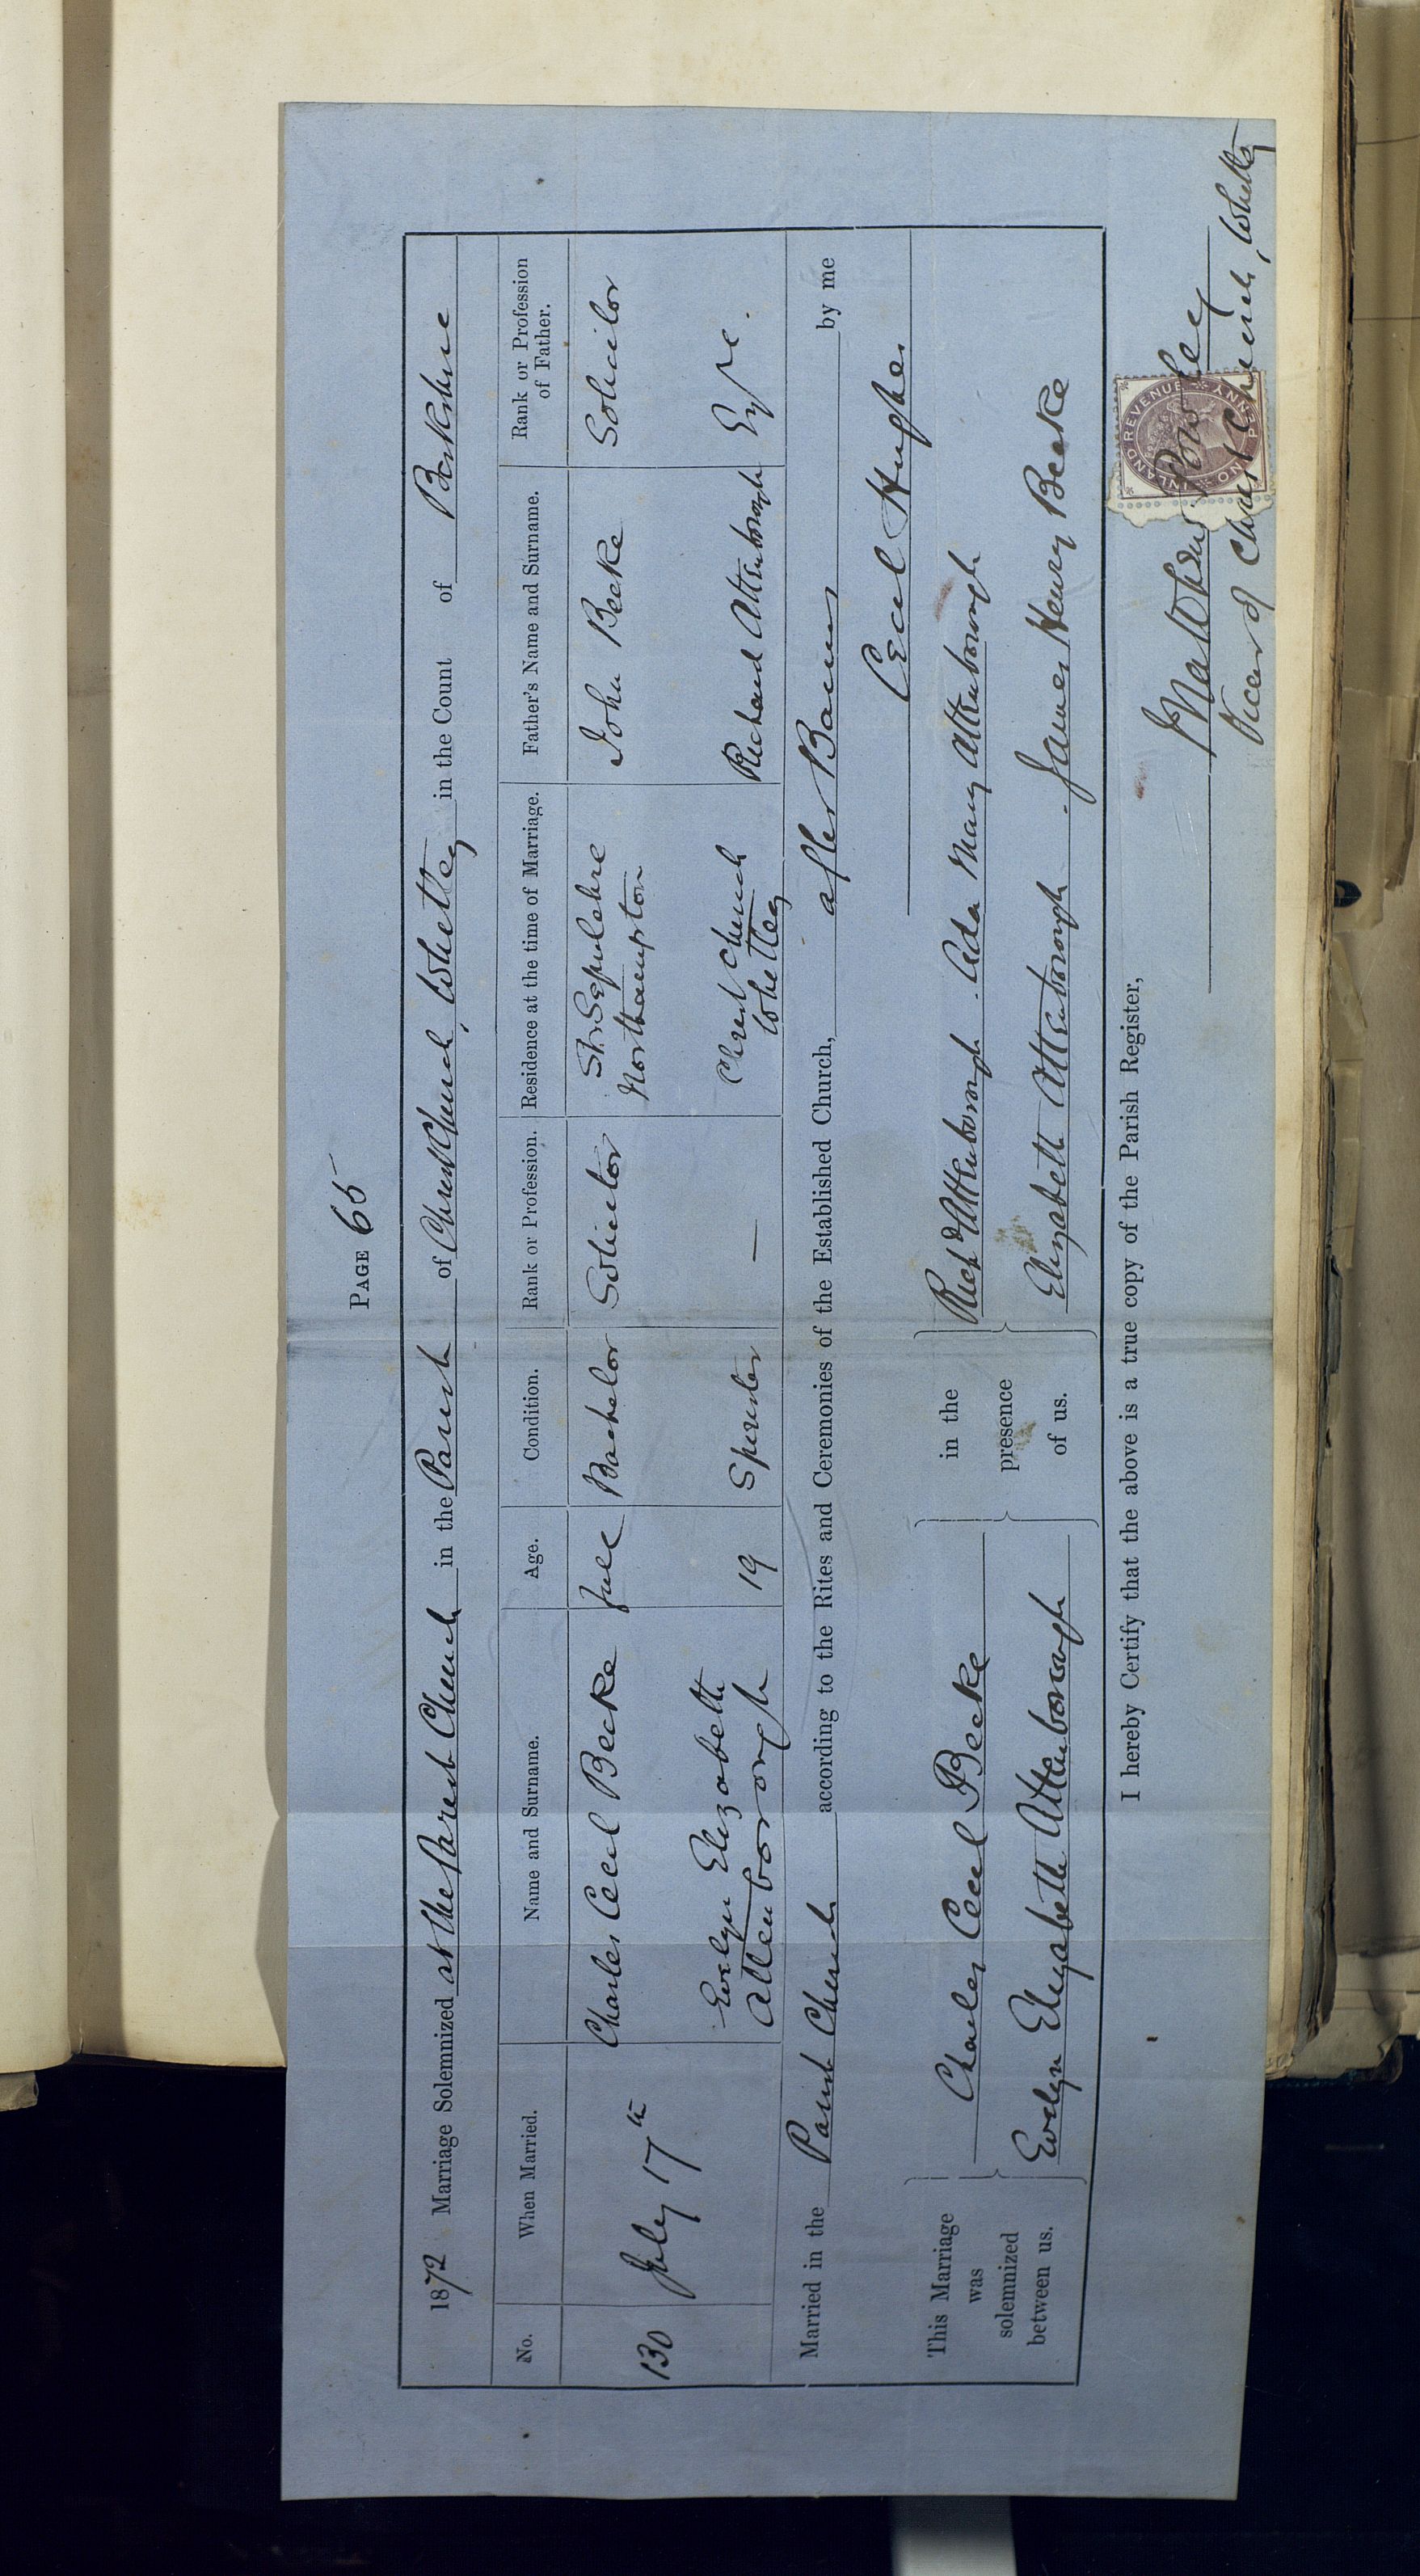 PAGE 65
1872 Marriage Solemnized at the Parish Church in the Parish of Christ Church, Whitley in the Count of Berkshire
No. When Married. Name and Surname. Age. Condition. Rank or Profession. Residence at the time of Marriage. Father's Name and Surname. Rank or Profession of Father.
130 July 17th Charles Cecil Becke full Bachelor Solicitor St. Sepulchre Northampton John Becke Solicitor
Evelyn Elizabeth Attenborough 19 Spinster — Christ Church Whitley Richard Attenborough Esqre.
Married in the Parish Church according to the Rites and Ceremonies of the Established Church, after Banns by me
Cecil Hughes.
This Marriage was solemnized between us.
Charles Cecil Becke
Evelyn Elizabeth Attenborough
in the presence of us.
Richd Attenborough . Ada Mary Attenborough
Elizabeth Attenborough . James Henry Becke
I hereby Certify that the above is a true copy of the Parish Register,
Matthew Powley
Vicar of Christ Church, Whitley
INLAND REVENUE
ONE PENNY